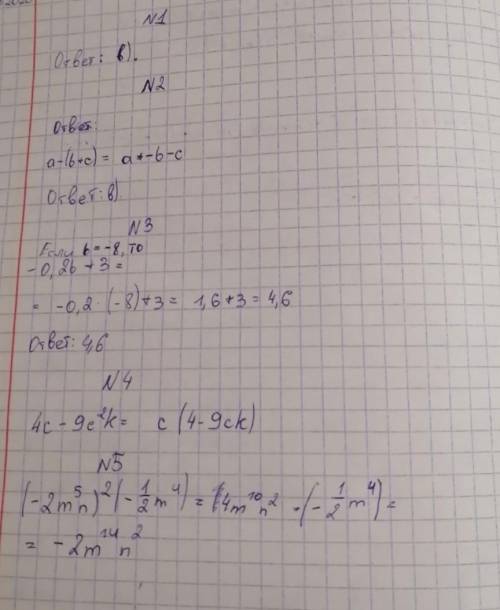 N1
Ответ: в).
N2
Ответ:
a-(b+c) = a+-b-c
Ответ: в)
N3
Если b=-8, то
-0,2b+3=
= -0,2·(-8)+3= 1,6+3=4,6
Ответ: 4,6
N4
4c-9c²k= c(4-9ck)
N5
(-2m⁵n)²(-1/2m⁴) = (4m¹⁰n²·(-1/2m⁴)=
= -2m¹⁴n²